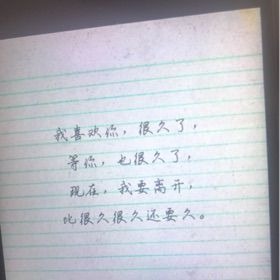 我喜欢你，很久了，
等你，也很久了，
现在，我要离开，
比很久很久还要久。